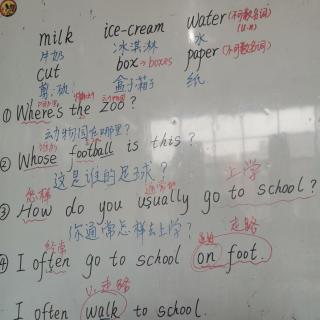 milk ice-cream water (不可数名词)
牛奶 冰淇淋 水 (u.n)
cut box → boxes paper (不可数名词)
剪,切 盒子箱子 纸
① Where's the zoo?
动物园在哪里?
② Whose football is this?
这是谁的足球? 上学
怎样 通常地
③ How do you usually go to school?
你通常怎样去上学? 走路
经常
④ I often go to school on foot.
V. 走路
I often walk to school.